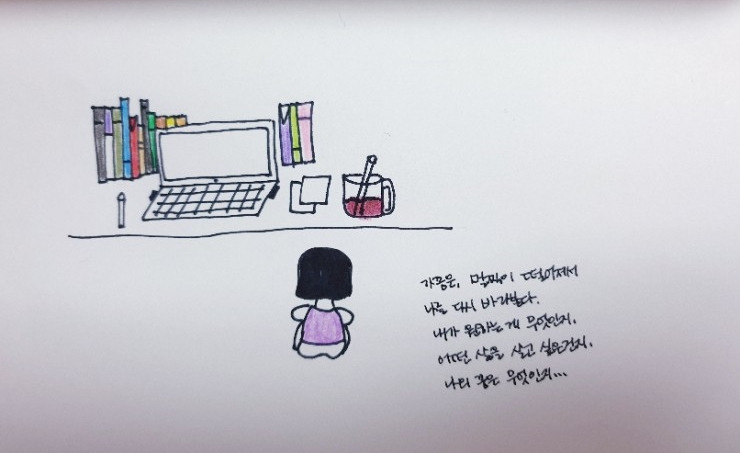 가끔은, 멀찍이 떨어져서
나를 다시 바라본다.
내가 원하는 게 무엇인지.
어떤 삶을 살고 싶은건지.
나의 꿈은 무엇인지...